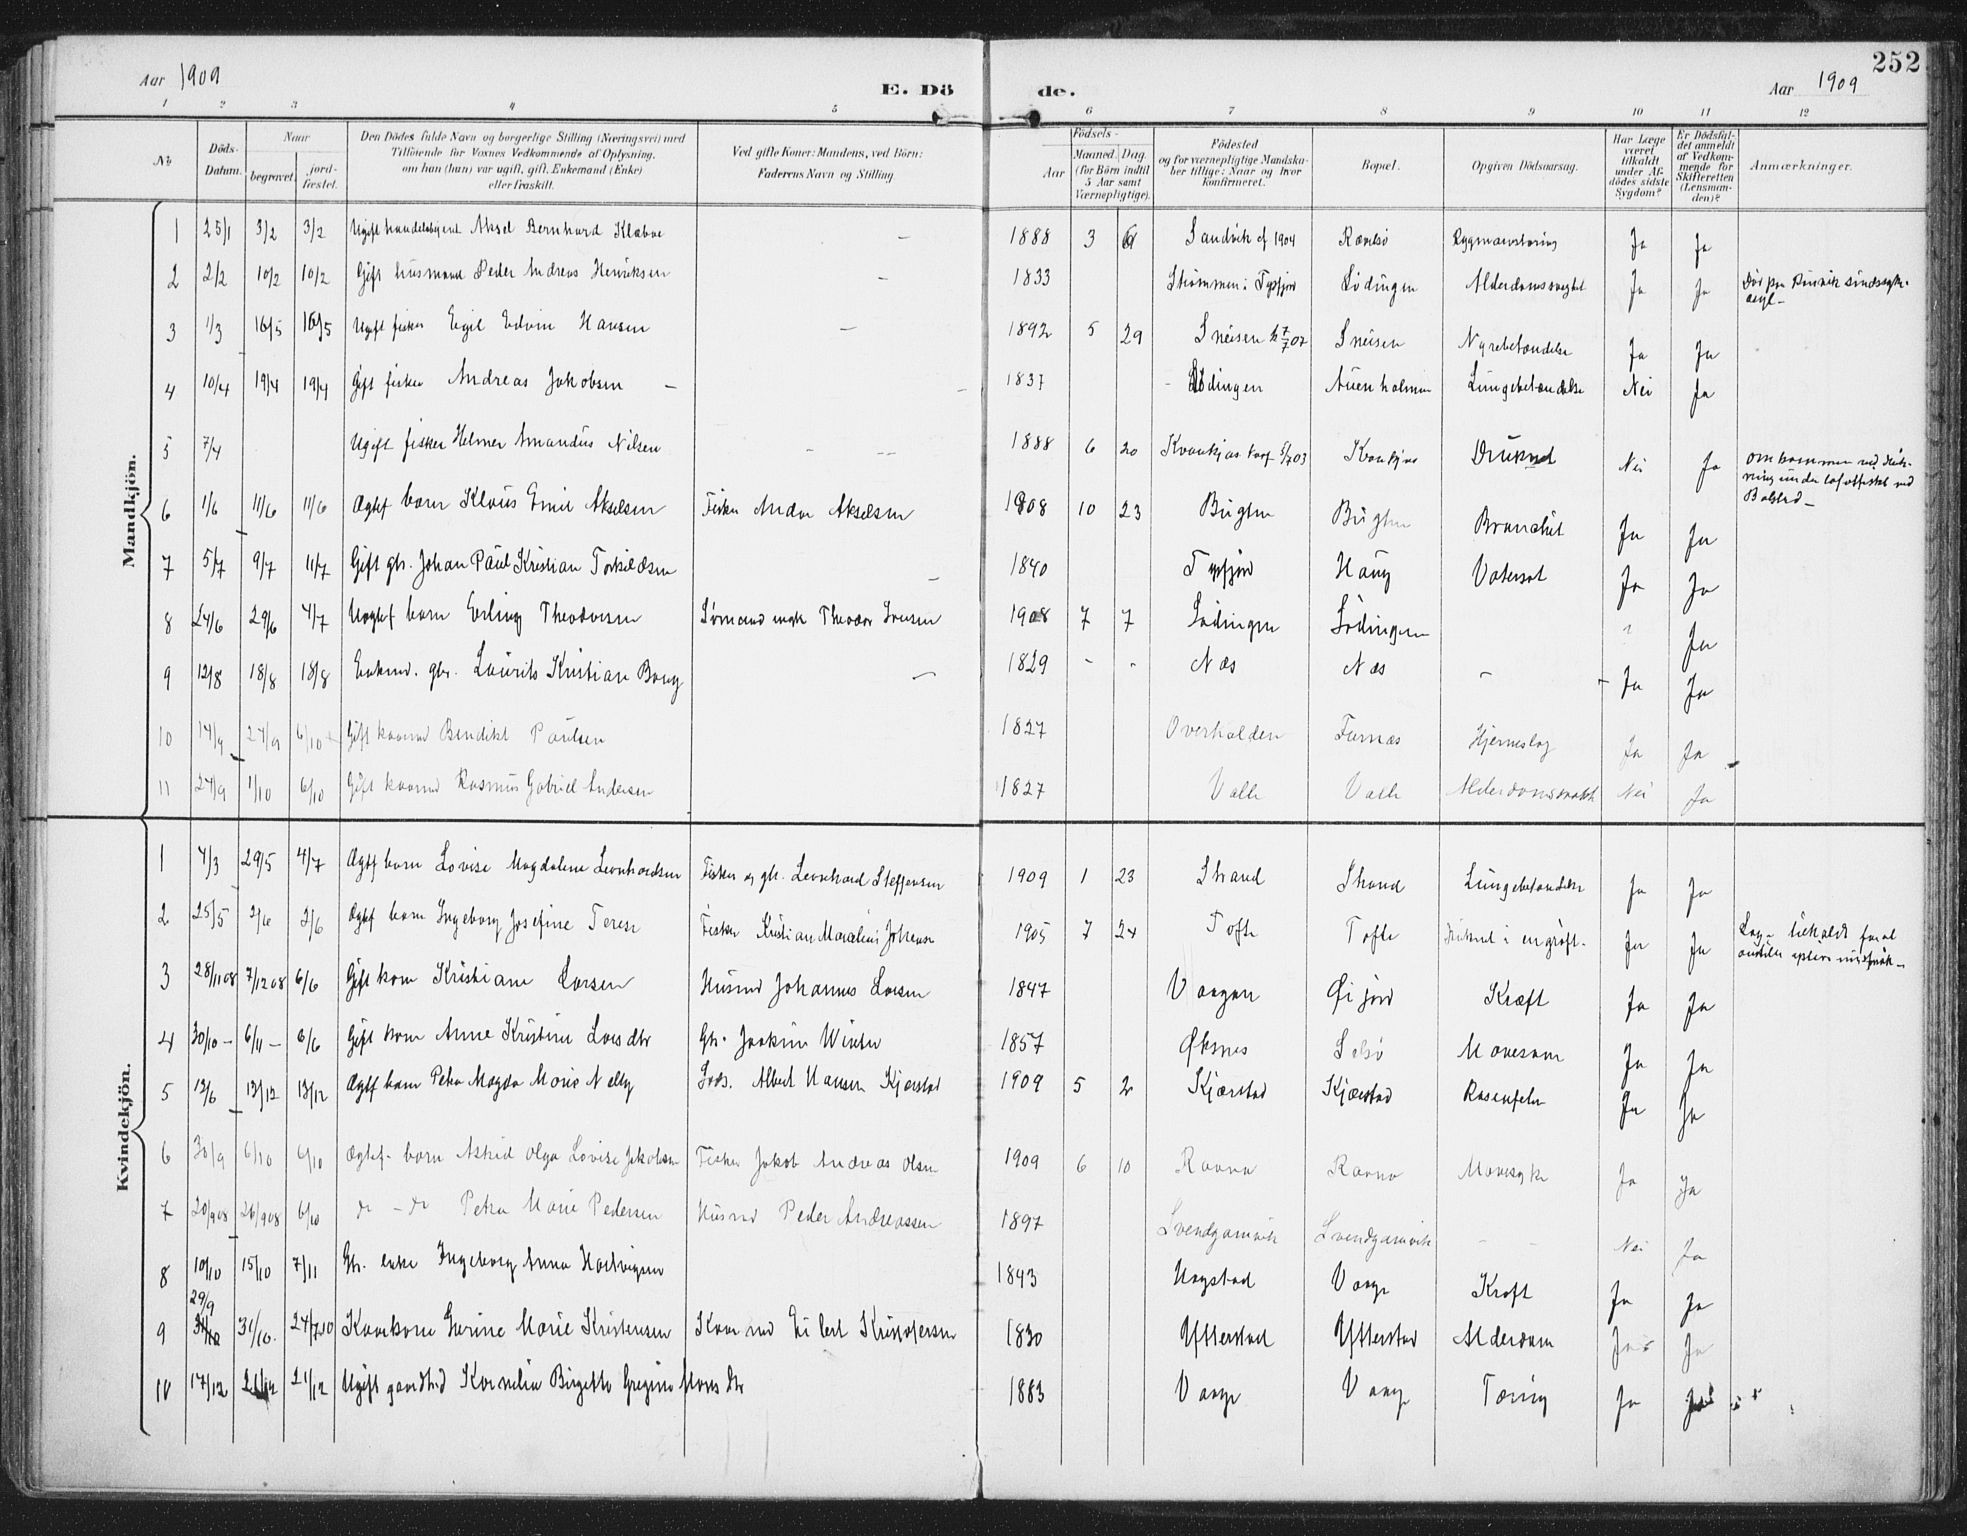 Aar 1909
E. Dö
de.
Aar 1909
252
1 2 3 4 5 6 7 8 9 10 11 12
No
Döds-Datum.
Naar
begravet.
jord-fæstet.
Den Dödes fulde Navn og borgerlige Stilling (Næringsvei) med
Tilföiende for Voxnes Vedkommende af Oplysning,
om han (hun) var ugift, gift, Enkemand (Enke)
eller fraskilt.
Ved gifte Koner: Mandens, ved Börn:
Faderens Navn og Stilling
Födsels-
Aar
Maaned. Dag.
(for Börn indtil 5 Aar samt Værnepligtige).
Födested
og for værnepligtige Mandska-
ber tillige: Naar og hvor
konfirmeret.
Bopæl.
Opgiven Dödsaarsag.
Har Læge været tilkaldt under Af-dödes sidste Sygdom?
Er Dödsfal-det anmeldt af Vedkom-mende for Skifteretten (Lensman-den)?
Anmærkninger.
Mandkjön.
1 25/1 3/2 3/2 Ugift handelsbetjent Aksel Bernhard Klæboe — 1888 3 Sandvik cf 1904 Rævelsö Rygmarvstæring Ja Ja
2 2/2 10/2 10/2 Gift husmand Peder Andreas Henriksen — 1833 Strömmen i Tysfjord Lödingen Alderdomssvaghet Ja Ja Död paa Rønvik sindssyge-asyl —
3 1/3 16/5 16/5 Ugift fisker Egil Edvin Hansen — 1892 5 29 Sneisen k 7/7 07 Sneisen Nyrebetændelse Ja Ja
4 10/4 19/4 19/4 Gift fisker Andreas Jakobsen — 1837 Lödingen Auenholmen Lungebetændelse Nei Ja
5 7/4 Ugift fisker Helmer Amandus Nilsen — 1888 6 20 Kvankjos Kvankjos Druknet Nei Ja omkommen ved kuldseiling under lofotfisket ved Balstad —
6 1/6 11/6 11/6 Ægtef barn Klaus Emil Akselsen Fisker Andor Akselsen 1908 10 23 Bugten Bugten Bronchit Ja Ja
7 5/7 9/7 11/7 Gift gbr. Johan Paul Kristian Torkildsen — 1840 Tysfjord Haug Vatersot Ja Ja
8 24/6 29/6 4/7 Uægtef barn Erling Theodorsen Sömand ungk Theodor Iversen 1908 7 7 Lödingen Lödingen Ja
9 12/8 18/8 18/8 Enkmd. gbr. Laurits Kristian Borg — 1829 - - Næs Næs — Ja Ja
10 14/9 27/9 6/10 Gift kaarmd Bendikt Paulsen 1827 Overhalden Furnæs Hjerneslag Ja Ja
11 27/9 1/10 6/10 Gift kaarmd Rasmus Gabriel Andersen 1827 Valle Valle Alderdomssvakh Nei Ja
Kvindekjön.
1 4/3 29/5 4/7 Ægtef barn Lovise Magdalene Leonhardsen Fisker og gbr. Leonhard Steffensen 1909 1 23 Strand Strand Lungebetændelse Ja Ja
2 25/5 2/6 2/6 Ægtef barn Ingeborg Josefine Terese Fisker Kristian Marselius Johansen 1905 7 24 Tofte Tofte Druknet i en gröft. Ja Ja
3 28/11 08 7/12 08 6/6 Gift kone Kristiane Larsen Husmd Johannes Larsen 1847 Vaagan Öifjord Kræft Ja Ja
4 30/10 — 6/11 — 6/6 Gift kone Anne Kristine Larsdtr Gbr. Joakim Winter 1857 Øksnes Selsö Mavesaar Ja Ja
5 12/6 13/12 13/12 Ægtef barn Petra Magda Marie Nelly Grds. Albert Hansen Kjærstad 1909 5 2 Kjærstad Kjærstad Rosenfeber Ja Ja
6 30/9 6/10 6/10 Ægtef- barn Astrid Olga Lovise Jakobsen Fisker Jakob Andreas Olsen 1909 6 10 Ravna Ravna Mavesyke Ja Ja
7 20/9 08 26/9 08 6/10 do - do Petra Marie Pedersen Husmd Peder Andreassen 1897 Svendgamvik Svendgamvik — — Nei Ja
8 10/10 15/10 7/11 Gbr. enke Ingeborg Anna Hartvigsen 1843 Hagstad Vaage Kræft Ja Ja
9 29/9 31/10. 24/7 10 Kaarkone Grerine Marie Kristensen Kaarmd Eilert Kristofersen 1830 Ytterstad Ytterstad Alderdom Ja Ja
10 17/12 21/12 21/12 Ugift gaardtid Kornelia Birgitte Gregine Hansdtr 1883 Vaage Vaage Tæring Ja